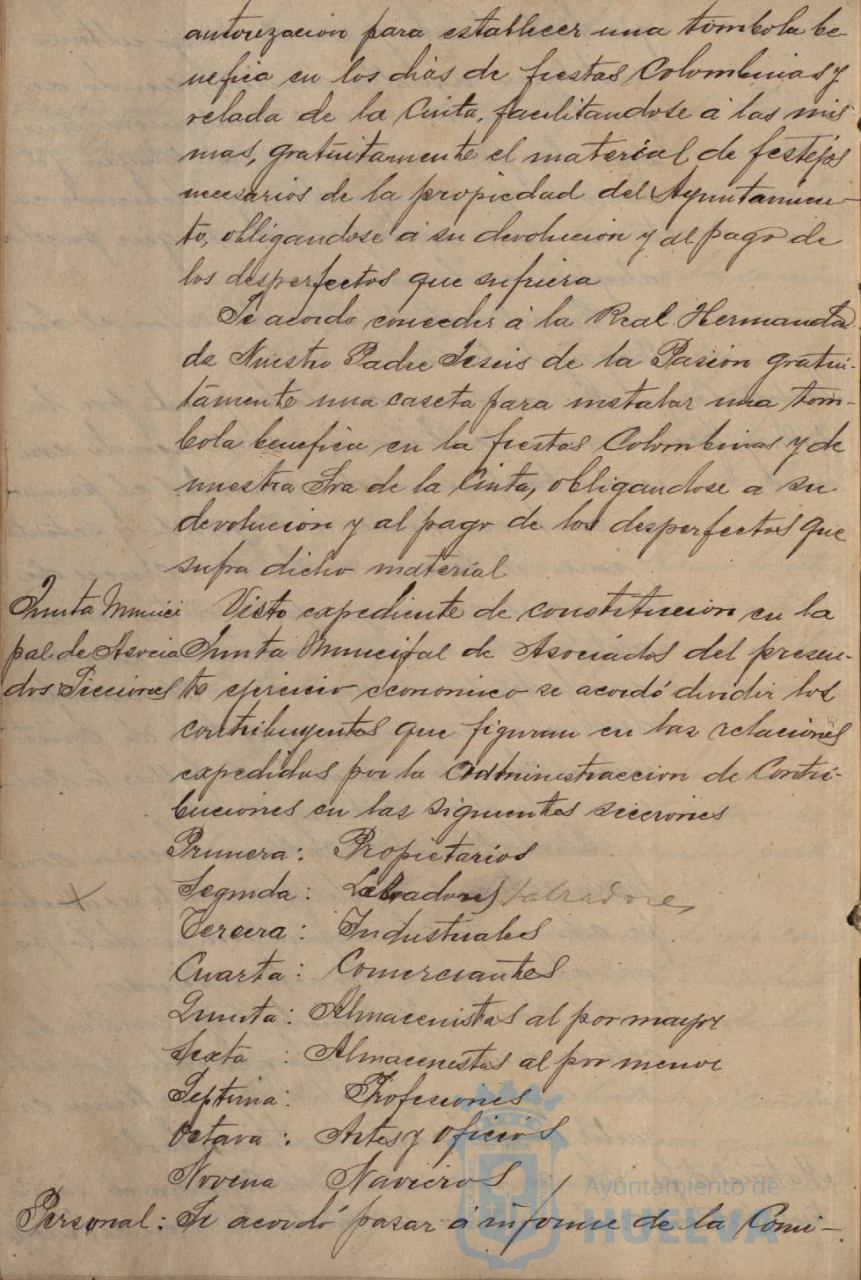 autorización para establecer una tómbola be-
nefica en los dias de fiestas Colombinas y
velada de la Cinta, facilitandose á las mis
mas, gratuitamente el material de festejos
necesarios de la propiedad del Ayuntamien-
to, obligandose á su devolucion y al pago de
los desperfectos que sufriera
Se acordo conceder á la Real Hermandad
de Nuestro Padre Jesus de la Pasion gratui-
tamente una caseta para instalar una tóm-
bola benefica en la fiestas Colombinas y de
nuestra Sra de la Cinta, obligandose a su
devolucion y al pago de los desperfectos que
sufra dicho material
Junta Munici
pal de Asocia
dos Secciones
Visto expediente de constitucion en la
Junta Municipal de Asociados del presen-
te ejercicio economico se acordó dividir los
contribuyentes que figuran en las relaciones
expedidas por la Administraccion de Contri-
buciones en las siguientes secciones
Primera: Propietarios
Segunda: Labradores labradores
Tercera: Industriales
Cuarta: Comerciantes
Quinta: Almacenistas al por mayor
Sexta: Almacenistas al por menor
Septima: Profesiones
Octava: Artes y oficios
Novena Navieros
Personal: Se acordó pasar á informe de la Comi-
Ayuntamiento de
HUELVA